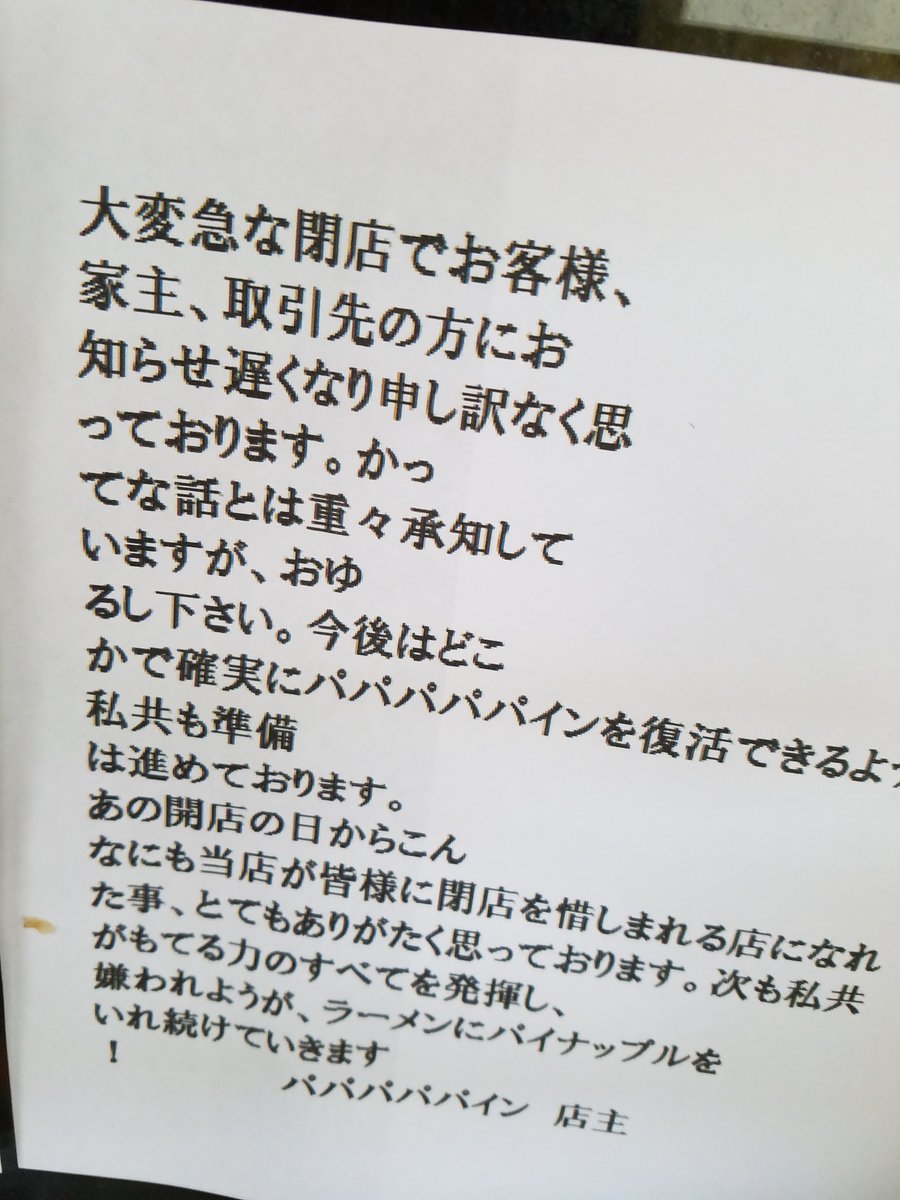 大変急な閉店でお客様、
家主、取引先の方にお
知らせ遅くなり申し訳なく思
っております。かっ
てな話とは重々承知して
いますが、おゆ
るし下さい。今後はどこ
かで確実にパパパパパインを復活できるよう
私共も準備
は進めております。
あの開店の日からこん
なにも当店が皆様に閉店を惜しまれる店になれ
た事、とてもありがたく思っております。次も私共
がもてる力のすべてを発揮し、
嫌われようが、ラーメンにパイナップルを
いれ続けていきます
!
パパパパパイン 店主